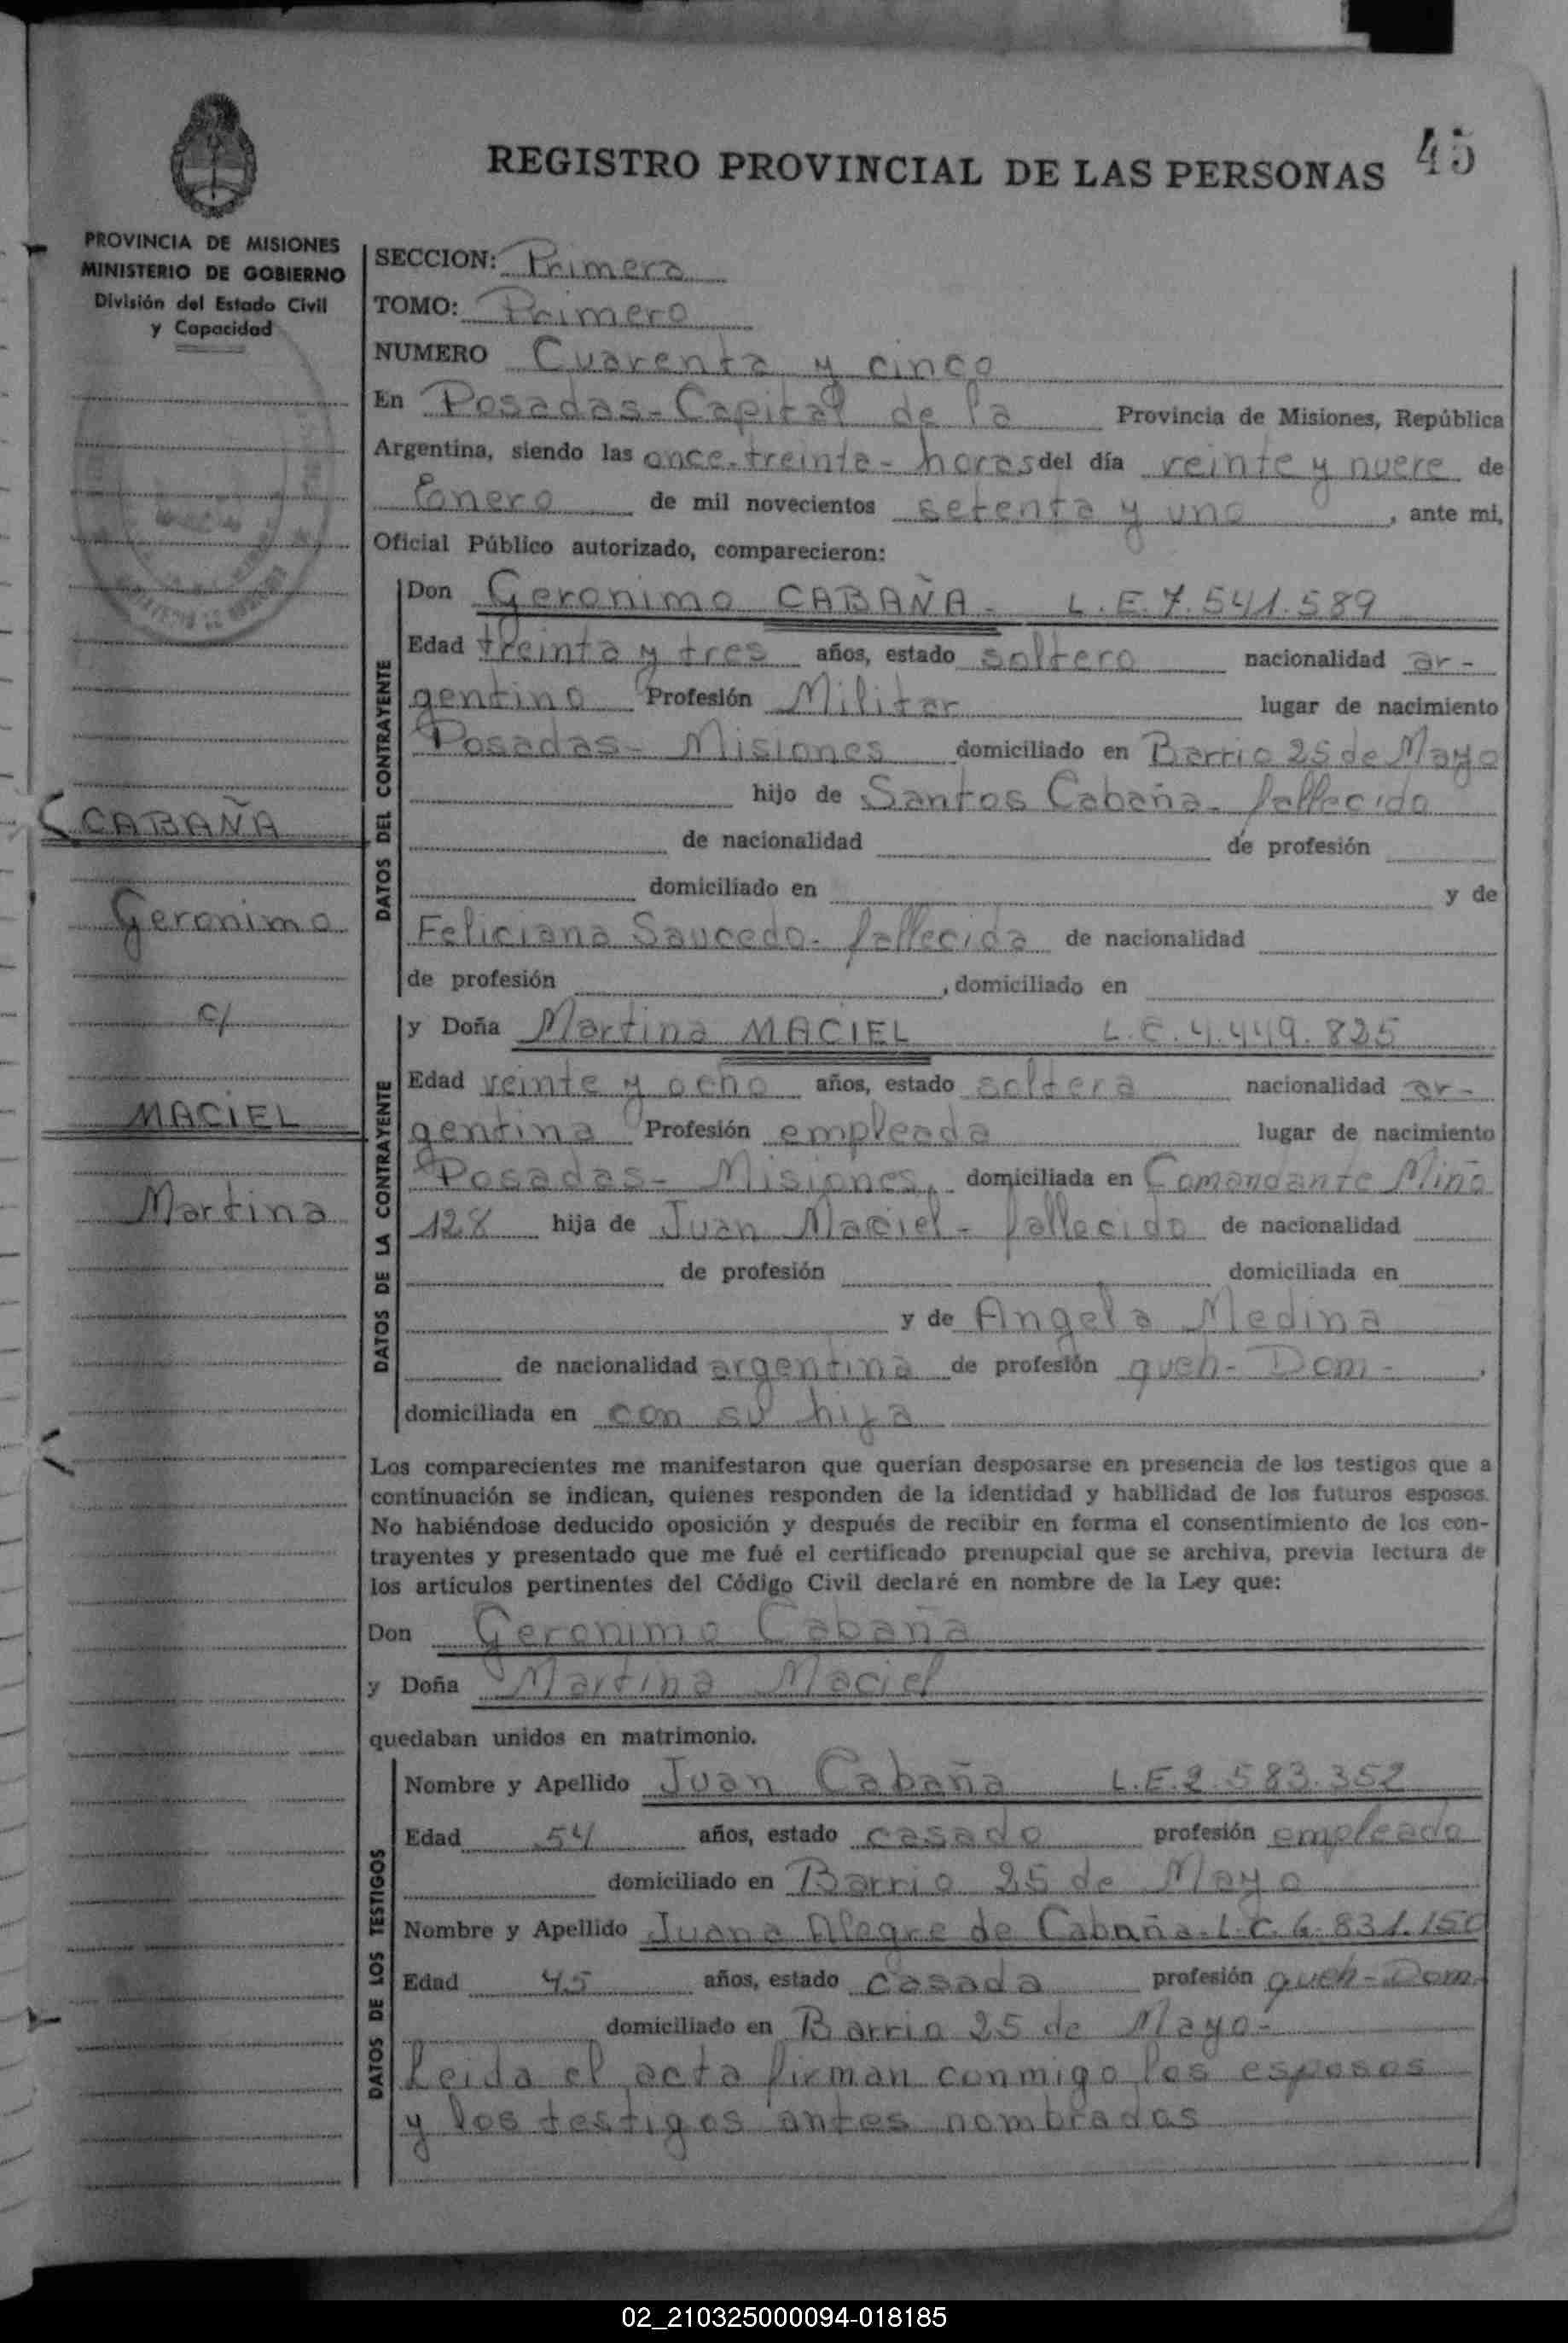 45
REGISTRO PROVINCIAL DE LAS PERSONAS
PROVINCIA DE MISIONES
MINISTERIO DE GOBIERNO
División del Estado Civil
y Capacidad
CABAÑA
Geronimo
c/
MACIEL
Martina
SECCION: Primera
TOMO: Primero
NUMERO Cuarenta y cinco
En Posadas - Capital de la Provincia de Misiones, República
Argentina, siendo las once - treinta - horas del día veinte y nueve de
Enero de mil novecientos setenta y uno, ante mi,
Oficial Público autorizado, comparecieron:
DATOS DEL CONTRAYENTE
Don Geronimo CABAÑA - L.E. 7.541.589
Edad treinta y tres años, estado soltero nacionalidad ar-
gentino Profesión Militar lugar de nacimiento
Posadas - Misiones domiciliado en Barrio 25 de Mayo
hijo de Santos Cabaña - fallecido
de nacionalidad de profesión
domiciliado en y de
Feliciana Saucedo - fallecida de nacionalidad
de profesión , domiciliado en
DATOS DE LA CONTRAYENTE
y Doña Martina MACIEL L.C. 4.449.825
Edad veinte y ocho años, estado soltera nacionalidad ar-
gentina Profesión empleada lugar de nacimiento
Posadas - Misiones, domiciliada en Comandante Miño
128 hija de Juan Maciel - fallecido de nacionalidad
de profesión domiciliada en
y de Angela Medina
de nacionalidad argentina de profesión queh - Dom -,
domiciliada en con su hija
Los comparecientes me manifestaron que querían desposarse en presencia de los testigos que a
continuación se indican, quienes responden de la identidad y habilidad de los futuros esposos.
No habiéndose deducido oposición y después de recibir en forma el consentimiento de los con-
trayentes y presentado que me fué el certificado prenupcial que se archiva, previa lectura de
los artículos pertinentes del Código Civil declaré en nombre de la Ley que:
Don Geronimo Cabaña
y Doña Martina Maciel
quedaban unidos en matrimonio.
DATOS DE LOS TESTIGOS
Nombre y Apellido Juan Cabaña L.E. 2.583.352
Edad 54 años, estado casado profesión empleado
domiciliado en Barrio 25 de Mayo
Nombre y Apellido Juana Alegre de Cabaña - L.C. 6.831.150
Edad 45 años, estado casada profesión queh - Dom.
domiciliado en Barrio 25 de Mayo -
Leida el acta firman conmigo los esposos
y los testigos antes nombrados
02_210325000094-018185